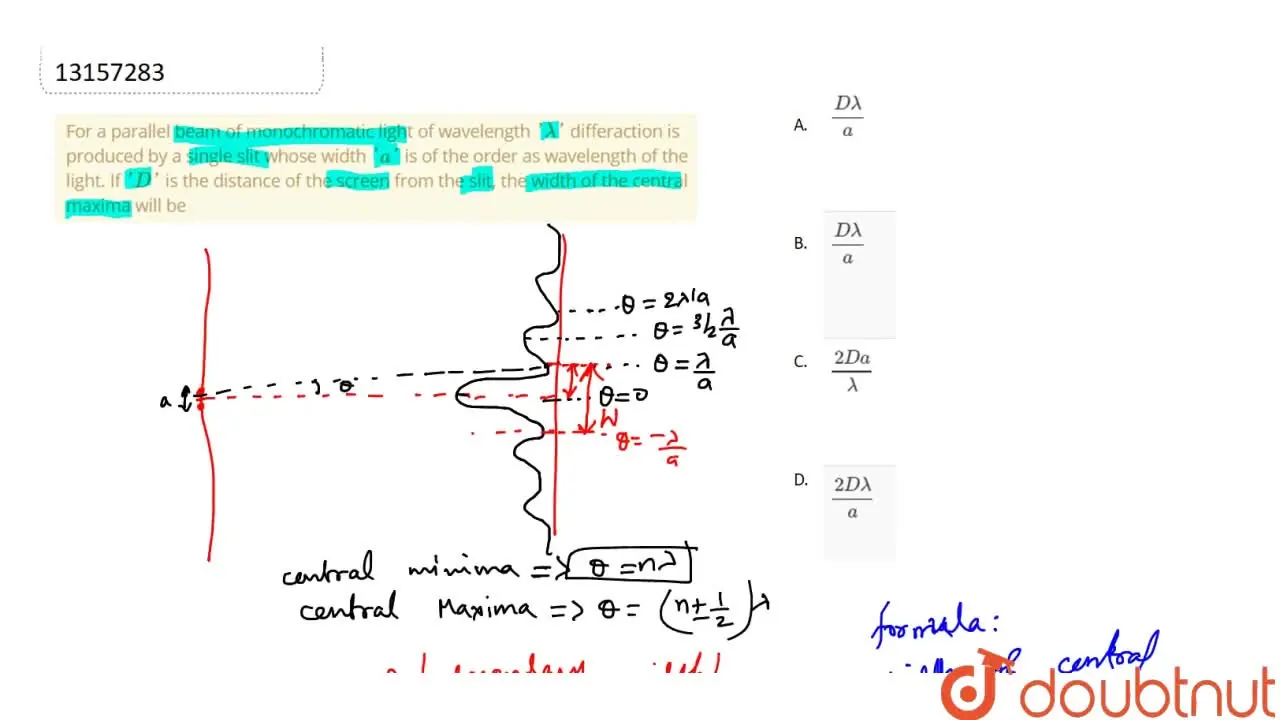 13157283
For a parallel beam of monochromatic light of wavelength 'λ' differaction is
produced by a single slit whose width 'a' is of the order as wavelength of the
light. If 'D' is the distance of the screen from the slit, the width of the central
maxima will be
A. Dλ/a
B. Dλ/a
C. 2Da/λ
D. 2Dλ/a
θ = 2λ/a
θ = 3/2 λ/a
θ = λ/a
θ
a
θ = 0
W
θ = -λ/a
central minima => θ = nλ
central Maxima => θ = (n ± 1/2)λ
formula:
central
doubtnut